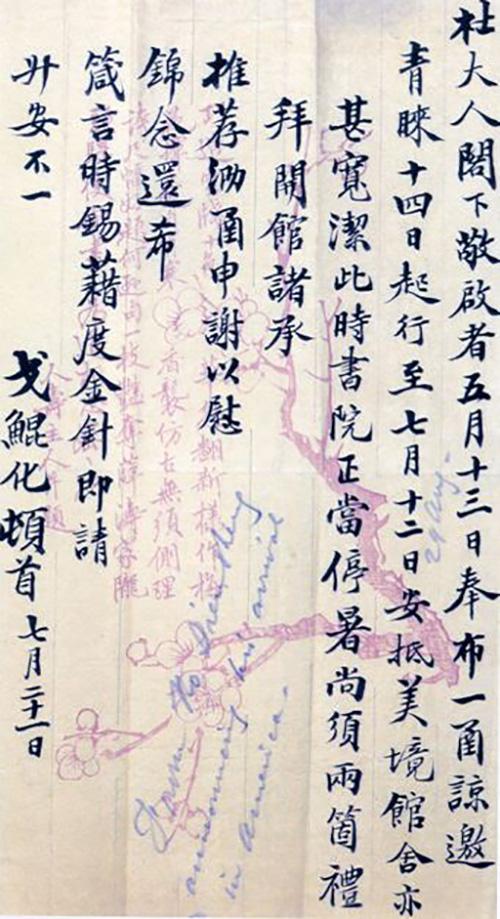 杜大人閣下敬啟者五月十三日奉布一函諒邀
青睞十四日起行至七月十二日安抵美境館舍亦
甚寬潔此時書院正當停暑尚須兩箇禮
拜開館諸承
推荐泐函申謝以慰
錦念還希
箴言時錫藉度金針即請
升安不一
戈鯤化頓首七月二十一日
29 Aug.
from Ko Kien
announcing his arrival
in America.